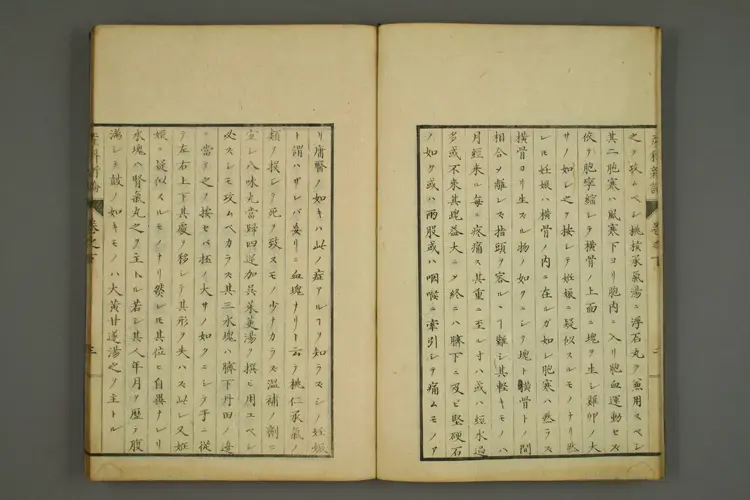 之ヲ攻ムベシ桃核承氣湯ニ浮石丸ヲ兼用スベシ
其二胞寒ハ風寒下ヨリ胞内ニ入リ胞血運動セズ
依テ胞寧縮レテ横骨ノ上面ニ塊ヲ生シ雞卵ノ大
サノ如シ之ヲ按シテ妊娠ニ疑似スルモノナリ然
レ𪜈妊娠ハ横骨ノ内ニ在ルガ如シ胞寒ハ然ラス
横骨ヨリ生スル物ノ如クニシテ塊ト横骨トノ間
相合シ離レス指頭ヲ容ルヽニ難シ其軽キモノハ
月經来ル每ニ疼痛ス其重ニ至レ寸ハ或ハ經水過
多或不来其塊益大ニシテ終ニハ臍下ニ及ビ堅硬石
ノ如ク或ハ両股或ハ咽喉ニ牽引シテ痛ムモノア
リ庸醫ノ如キハ此ノ症アルヿヲ知ラズシテ妊娠
ト謂ハザレバ妄リニ血塊ナリト云テ桃仁承氣ノ
類ヲ投シテ死ヲ致スモノ少ナカラス温補ノ劑ニ
宜シ八味丸當歸四逆加呉茱萸湯ヲ撰ビ用ユベシ
必スシモ攻ムベカラス其三水塊ハ臍下丹田ノ邊
ニ當テ之ヲ按セバ抔ノ大サノ如クニシテ手ニ從
テ左右上下其處ヲ移シテ其形ヲ失ハス此レ又妊
娠ニ疑似スルモノナリ然レ𪜈其位ニ自異ナレリ
水塊ハ腎氣丸之ヲ主トル若シ其人年月ヲ歴テ腹
滿シテ鼓ノ如キモノハ大黄甘遂湯之ヲ主トル